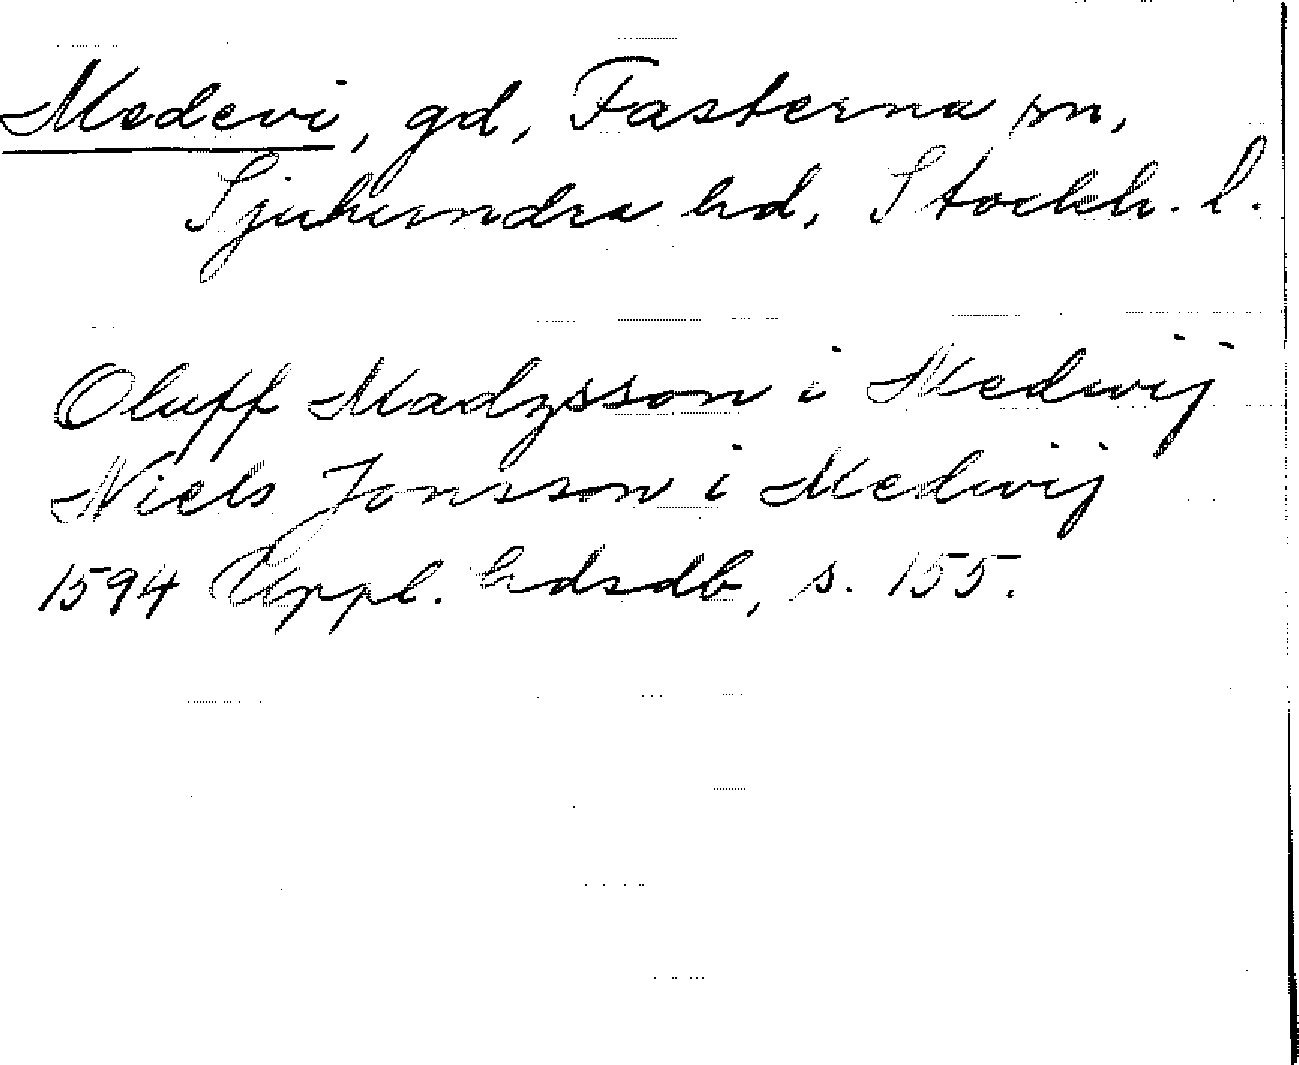 Medevi, gd, Fasterna sn,
Sjuhundra hd, Stockh. l.
Oluff Madzsson i Medwij
Niels Jonsson i Medwij
1594 Uppl. hdsdb, s. 155.